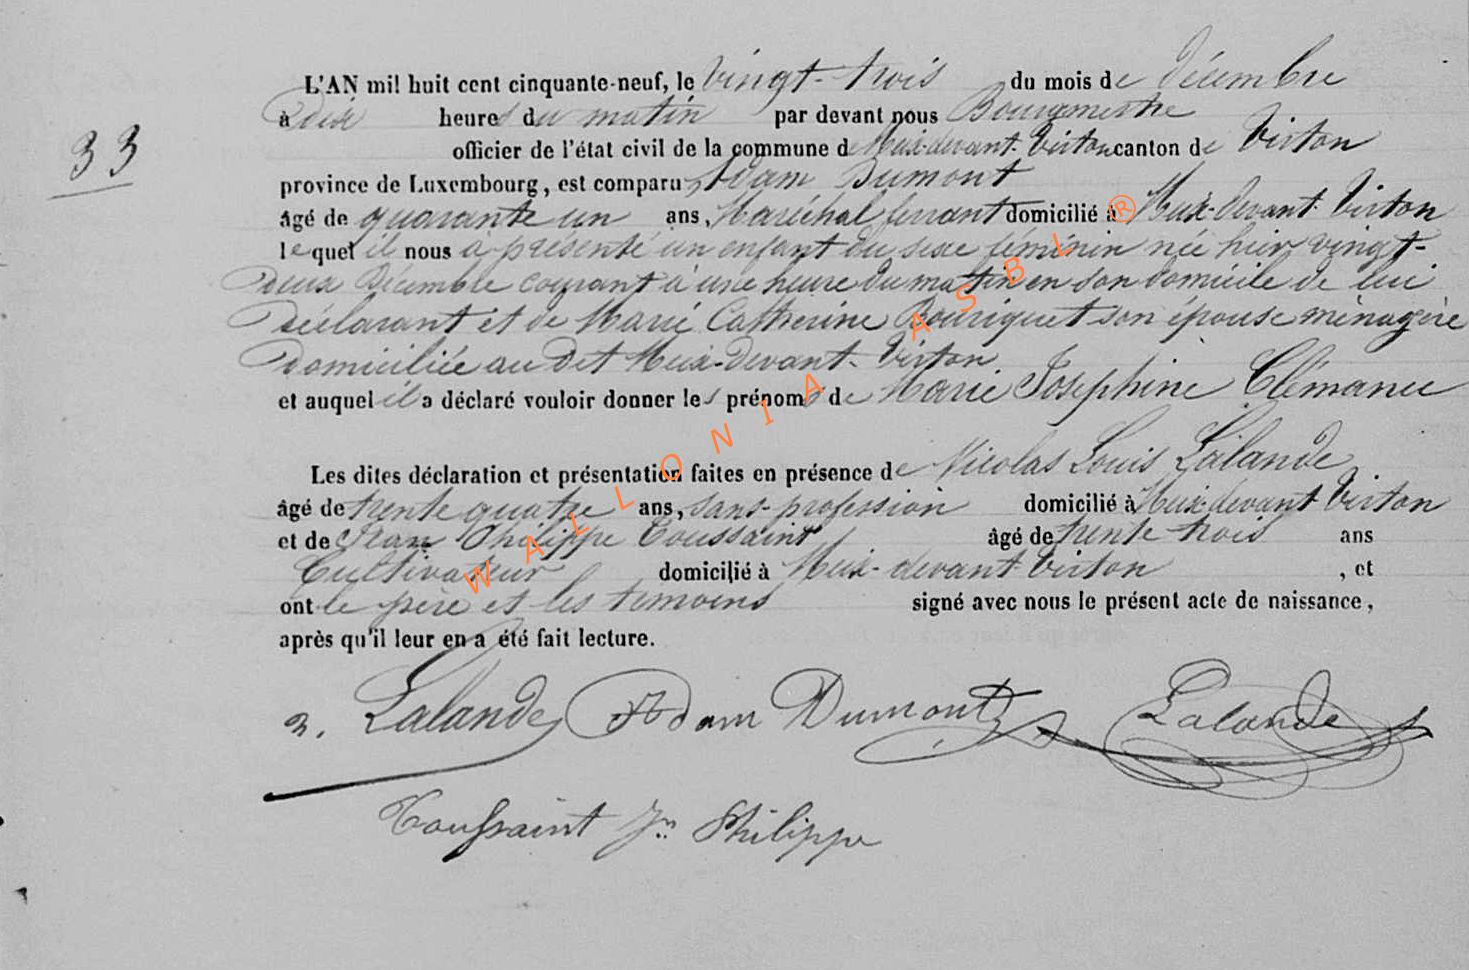 L'AN mil huit cent cinquante-neuf, le vingt-trois du mois de Décembre
à dix heures du matin par devant nous Bourgmestre
33
officier de l'état civil de la commune de Meix-devant-Virton canton de Virton
province de Luxembourg, est comparu Adam Dumont
âgé de quarante un ans, Maréchal ferrant domicilié à Meix-devant-Virton
lequel il nous a présenté un enfant du sexe féminin née hier vingt-
deux Décembre courant à une heure du matin en son domicile de lui
Déclarant et de Marie Catherine Bouriquet son épouse ménagère
Domiciliée au dit Meix-Devant-Virton
et auquel il a déclaré vouloir donner les prénoms de Marie Joséphine Clémance
Les dites déclaration et présentation faites en présence de Nicolas Louis Lalande
âgé de trente quatre ans, sans profession domicilié à Meix devant Virton
et de Jean Philippe Toussaint âgé de trente trois ans
Cultivateur domicilié à Meix-devant-Virton , et
ont le père et les témoins signé avec nous le présent acte de naissance,
après qu'il leur en a été fait lecture.
n. Lalande Adam Dumont Lalande
Toussaint Jn Philippe
WALLONIA ASBL ®